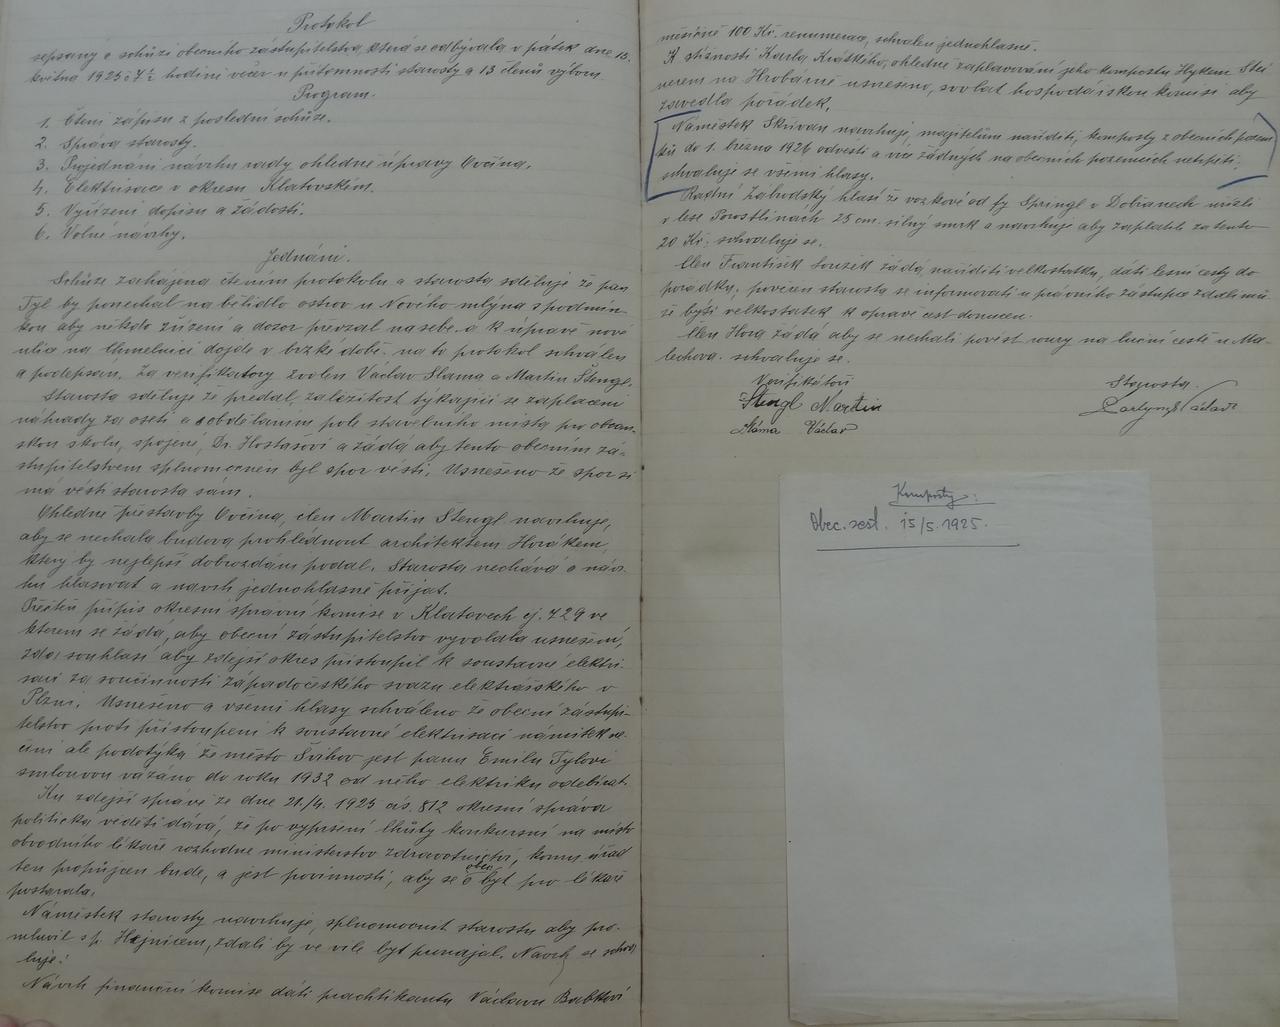 Protokol
sepsaný o schůzi obecního zástupitelstva, která se odbývala v pátek dne 15.
května 1925 o 7½ hodině večer u přítomnosti starosty a 13 členů výboru.
Program.
1. Čtení zápisu z poslední schůze.
2. Správa starosty.
3. Projednání návrhu rady ohledně úpravy Ovčína.
4. Elektrisace v okresu Klatovském.
5. Vyřízení dopisů a žádostí.
6. Volné návrhy.
Jednání.
Schůze zahájena čtením protokolu a starosta sděluje že pan
Tyl by ponechal na bělidlo ostrov u Nového mlýna s podmín-
kou aby někdo zřízení a dozor převzal na sebe. a k úpravě nové
ulice na Chmelnici dojde v brzké době. na to protokol schválen
a podepsán. Za verifikatory zvolen Václav Sláma a Martin Štengl.
Starosta sděluje že předal, záležitost týkající se zaplacení
náhrady za osetí a obděláním pole stavebního místa pro obecn-
skou školu, spojené, Dr. Hostašovi a žádá aby tento obecním zá-
stupitelstvem splnomocněn byl spor vésti. Usnešeno že spor si
má vésti starosta sám.
Ohledně přestavby Ovčína, člen Martin Štengl navrhuje,
aby se nechala budova prohlédnout architektem Horákem,
který by nejlepší dobrozdání podal. Starosta nechává o náv-
hu hlasovat a navrh jednohlasně přijat.
Přečten přípis okresní správní komise v Klatovech čj. 729 ve
kterém se žádá, aby obecní zástupitelstvo vyvolalo usnešení,
zda souhlasí aby zdejší okres přistoupil k soustavné elektri-
saci za součinnosti západočeského svazu elektrářského v
Plzni. Usnešeno a všemi hlasy schváleno že obecní zástupi-
telstvo proti přistoupení k soustavné elektrisaci námitek ne-
činí ale podotýká že město Švihov jest panu Emilu Tylovi
smlouvou vázáno do roku 1932 od něho elektriku odebírat.
Ku zdejší správě ze dne 21./4. 1925 čís. 812 okresní správa
politická věděti dává, že po vypršení lhůty konkursní na místo
obvodního lékaře rozhodne ministerstvo zdravotnictví, komu úřad
ten propůjčen bude, a jest povinností, aby se obec o byt pro lékaře
postarala.
Náměstek starosty navrhuje, splnomocnit starostu aby pro-
mluvil s p. Hejnicem, zdali by ve vile byt pronajal. Návrh se schva-
luje.
Návrh finanční komise dáti prachtikantu Václavu Babkovi
měsíčně 100 Kč. renumeraci, schválen jednohlasně.
K stížnosti Karla Krátkého, ohledně zaplavování jeho kompostu Hykem Stei
nerem na Hrobarně usnešeno, svolat hospodářskou komisi aby
zavedla pořádek.
Náměstek Skřivan navrhuje, majitelům naříditi, komposty z obecních pozem
ků do 1. března 1926 odvésti a víc žádných na obecních pozemcích netrpěti.
schvaluje se všemi hlasy.
Radní Zábrodský hlásí že vozkové od fy Špringl v Dobřanech uřízli
v lese Porostlinách 25 cm. silný smrk a navrhuje aby zaplatili za tento
20 Kč. schvaluje se.
Člen František Soušek žádá naříditi velkostatku, dáti lesní cesty do
pořádku, pověřen starosta se informovati u právního zástupce zdali mů-
že býti velkostatek k opravě cest donucen.
Člen Hora žádá aby se nechali povést roury na luční cestě u Ma-
lechova. schvaluje se.
Verifikátoři
Starosta.
Štengl Martin
Sláma Václav
Komposty:
Obec. zest. 15/5. 1925.